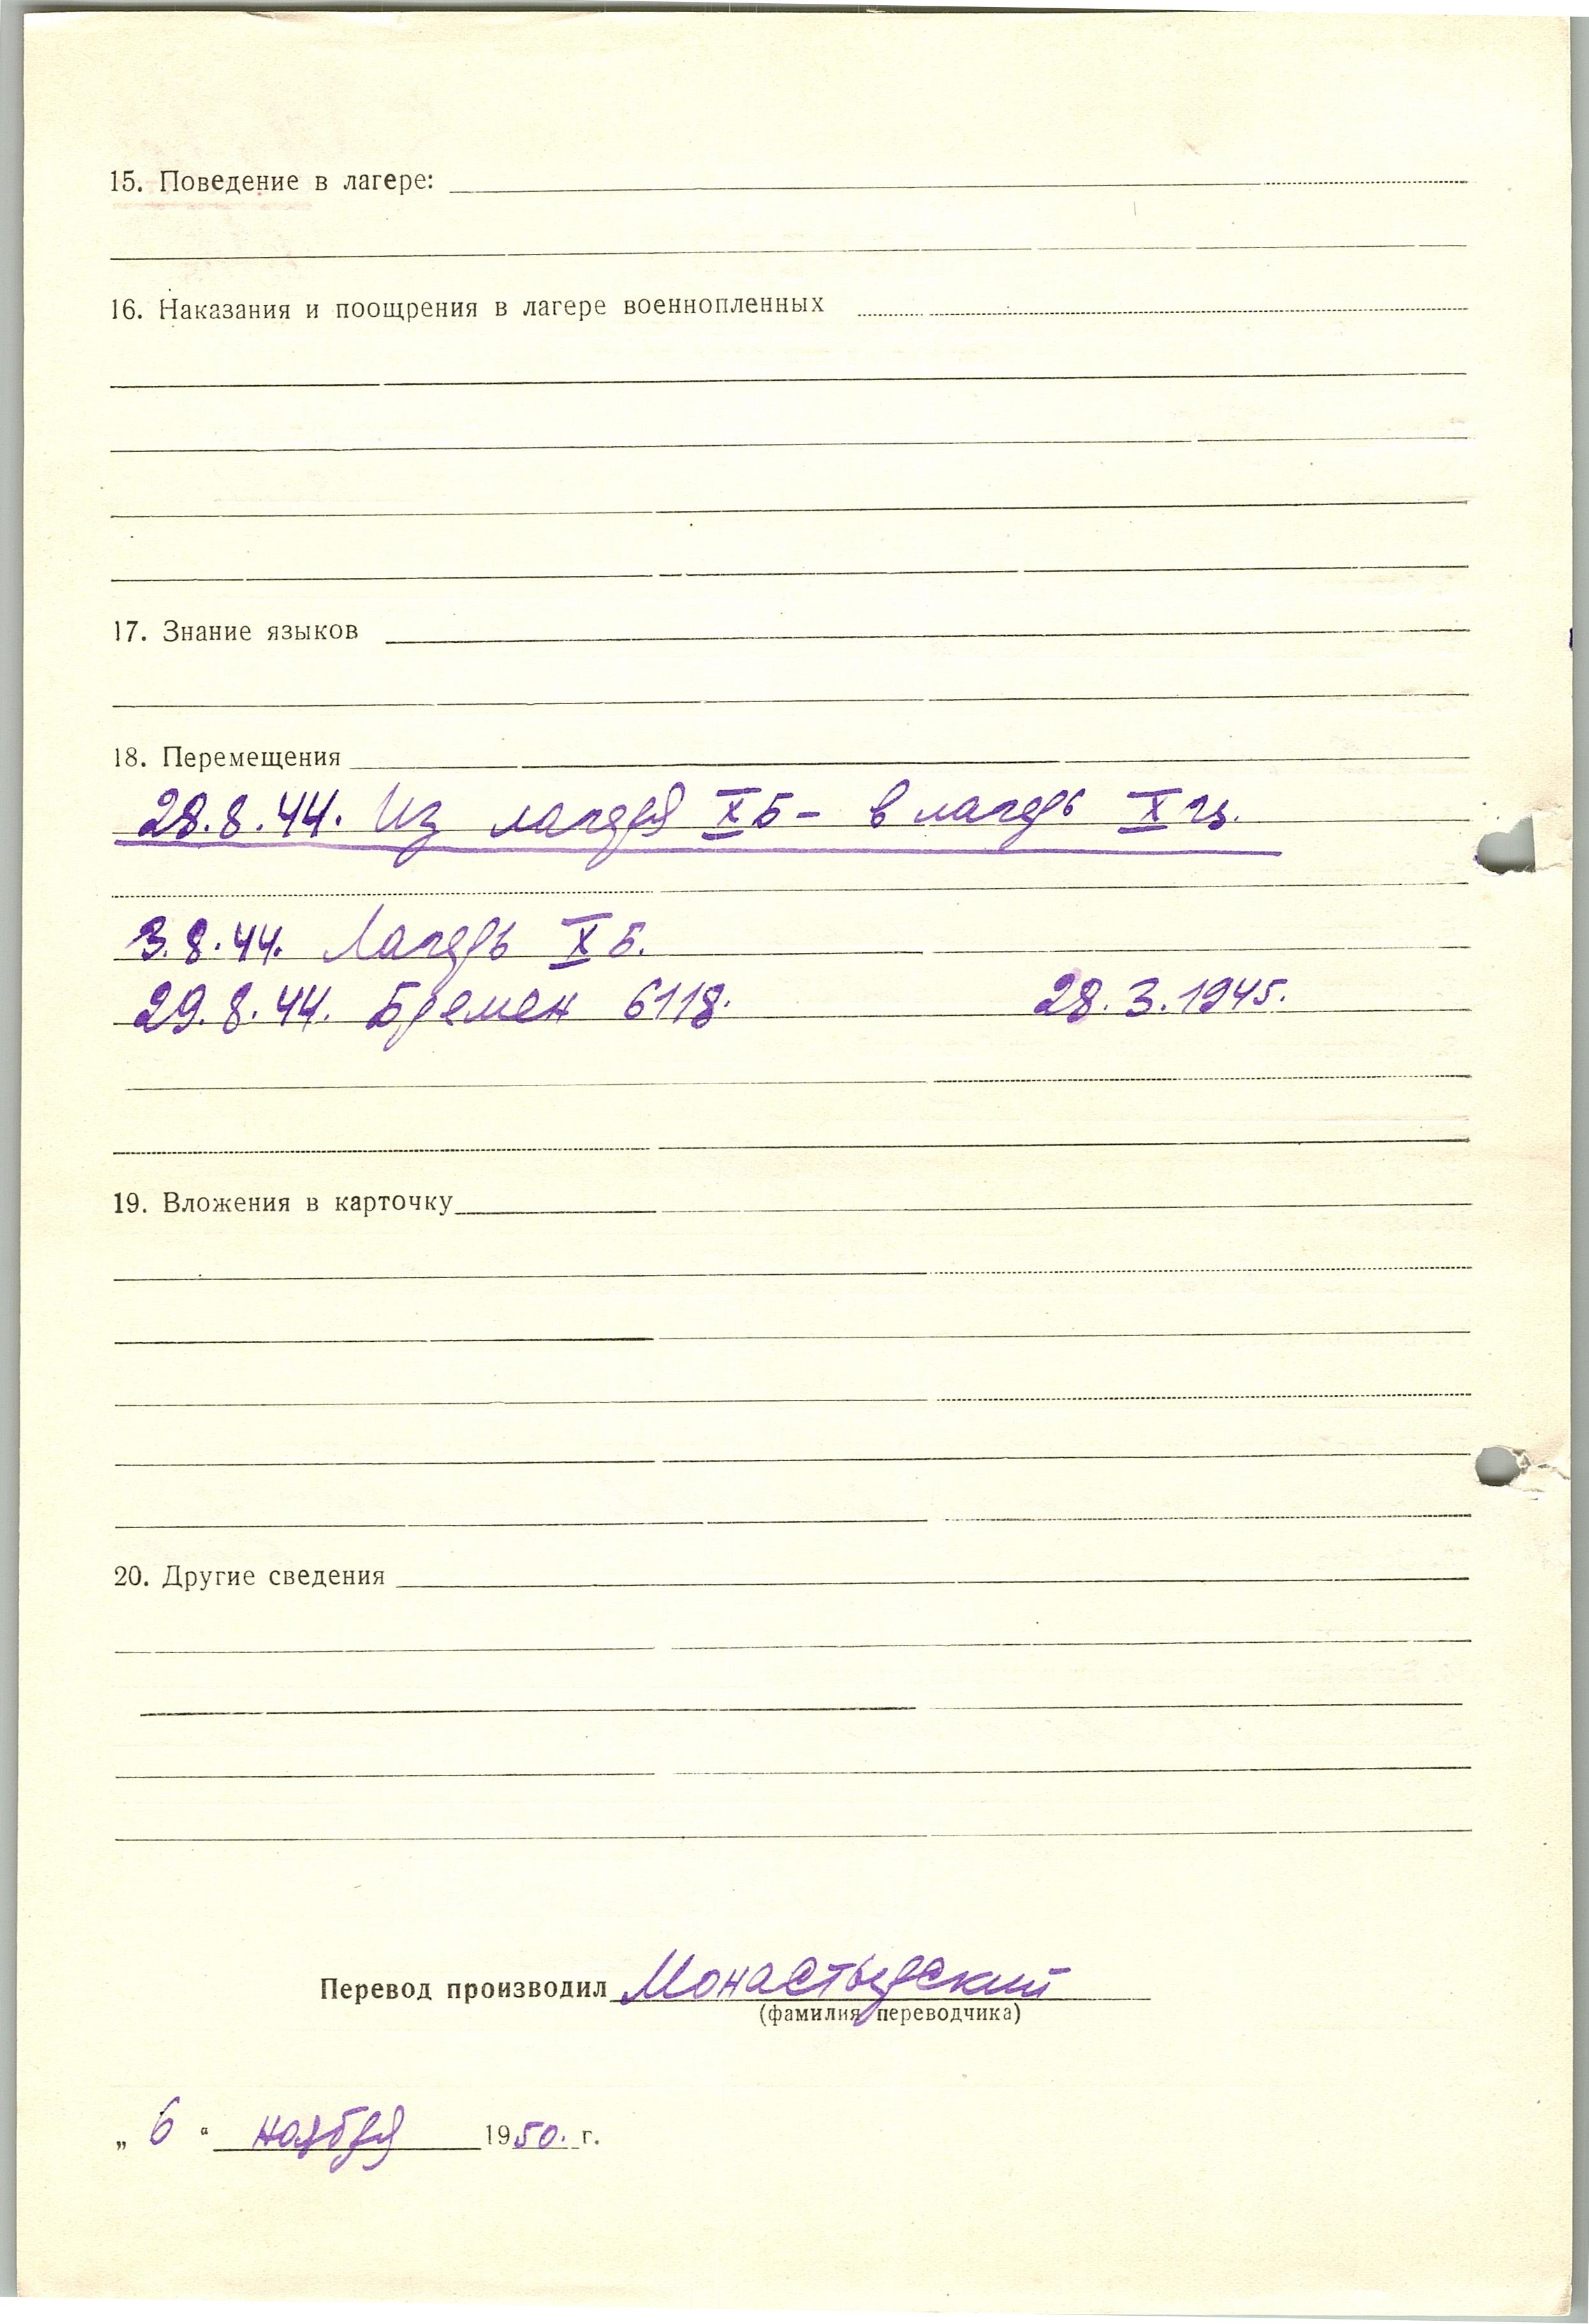 15. Поведение в лагере:
16. Наказания и поощрения в лагере военнопленных
17. Знание языков
18. Перемещения
28.8.44. Из лагеря X Б - в лагерь X
3.8.44. Лагерь X Б.
29.8.44. Бремен 6118. 28.3.1945.
19. Вложения в карточку
20. Другие сведения
Перевод производил Монастырский
(фамилия переводчика)
„ 6 “ ноября 1950. г.